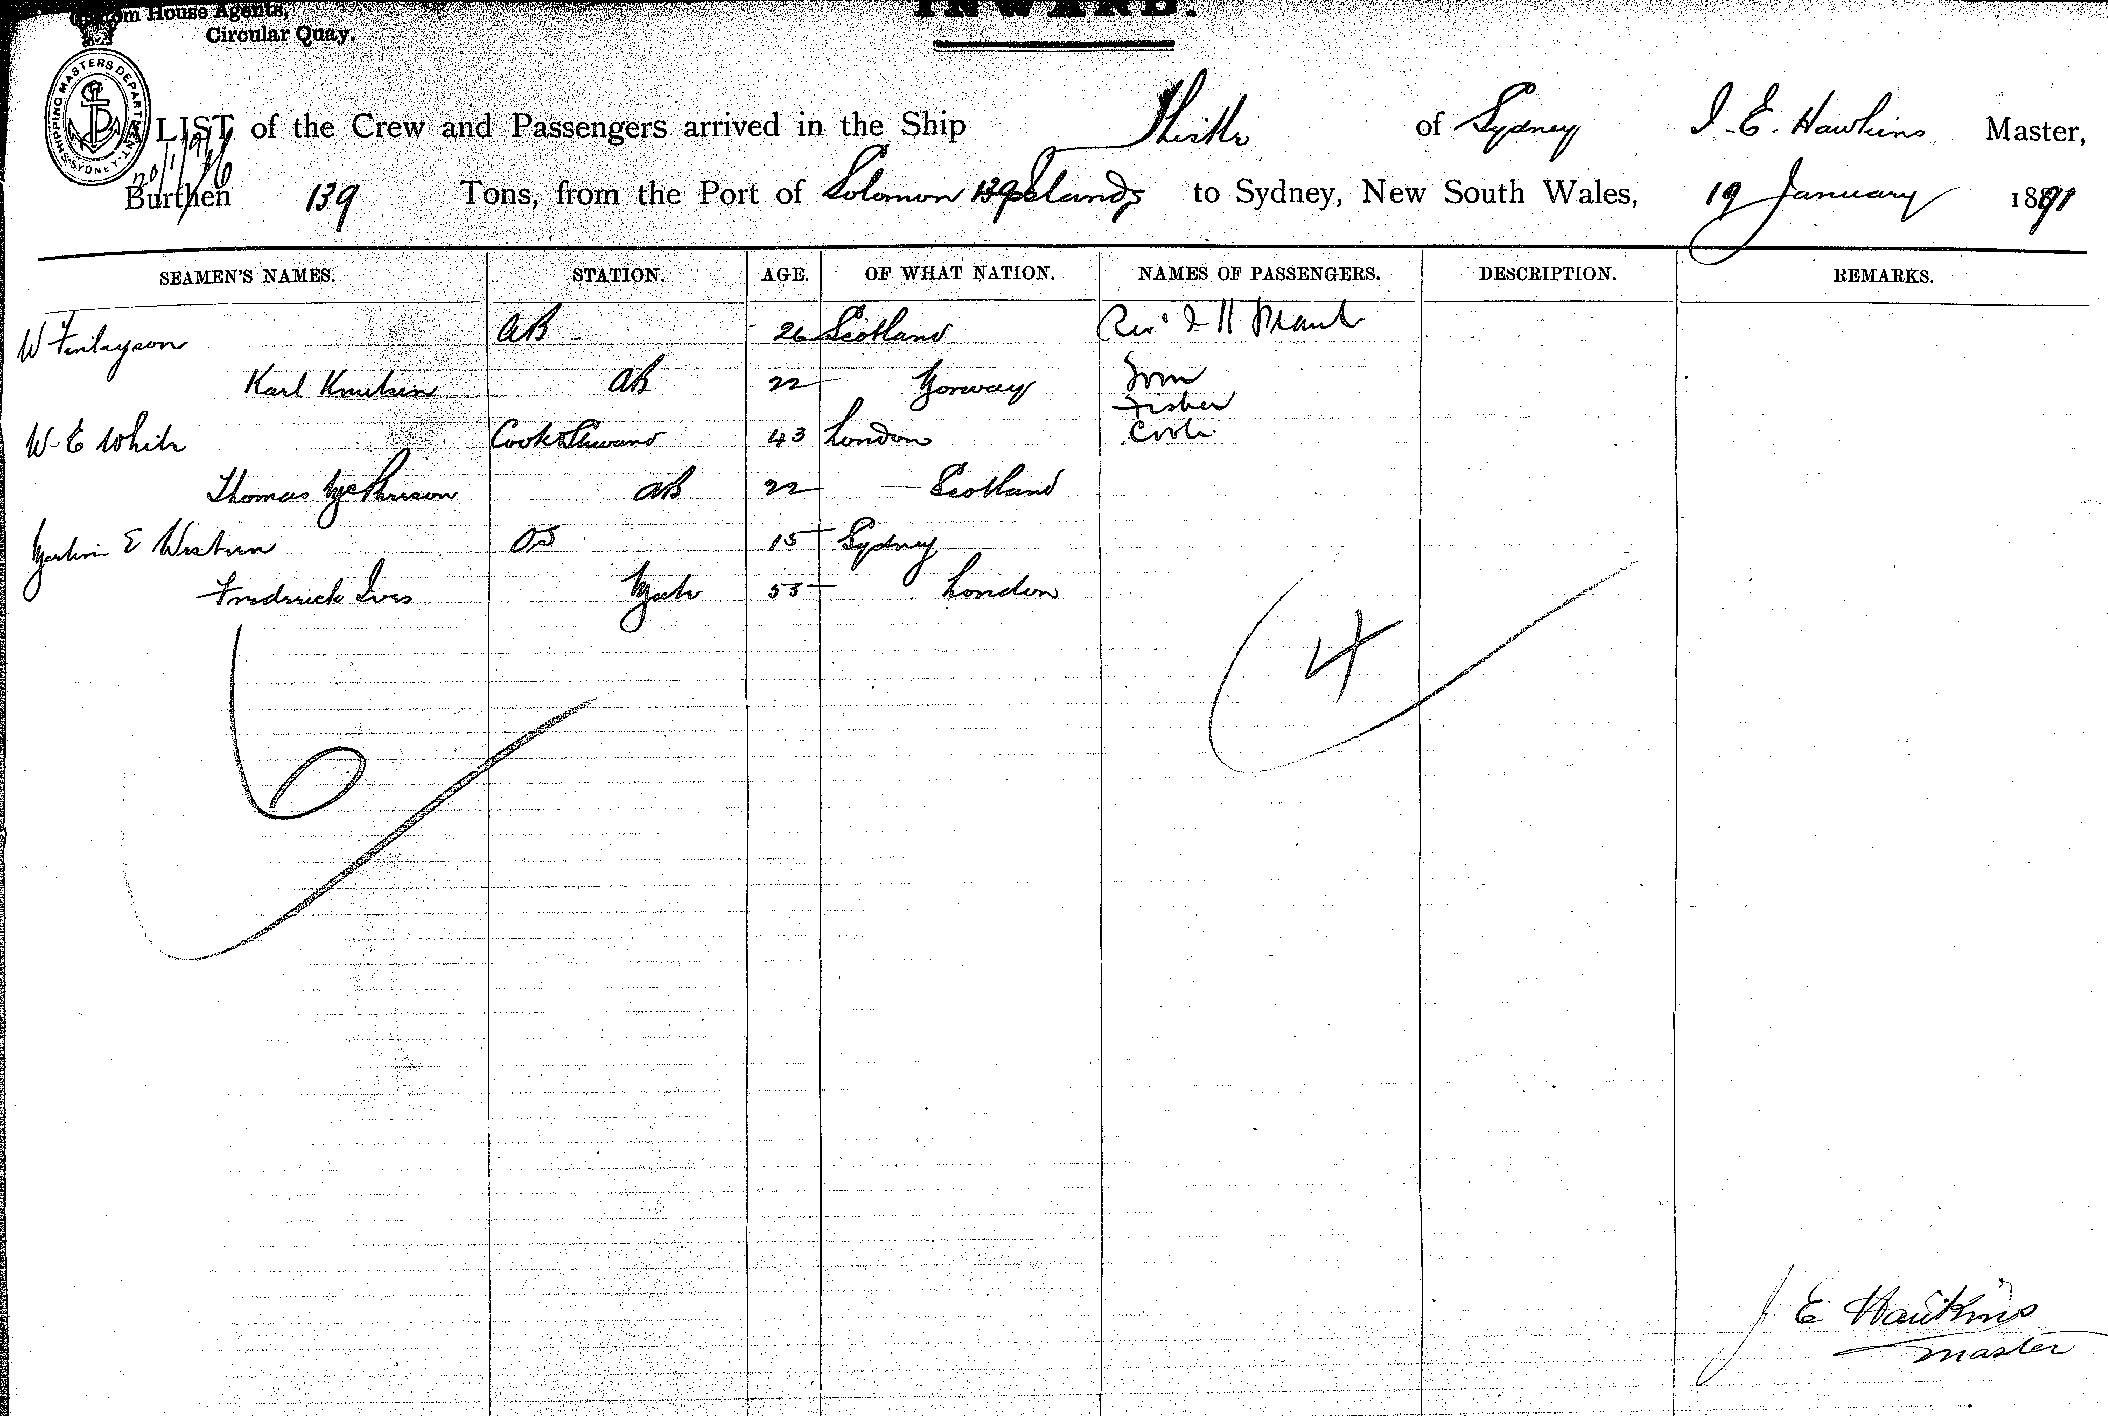 INWARD.
House Agents,
Circular Quay.
SHIPPING MASTERS DEPARTMENT. SYDNEY.
LIST of the Crew and Passengers arrived in the Ship of Sydney J. E. Hawkins Master,
Burthen 139 Tons, from the Port of Solomon Islands to Sydney, New South Wales, 19 January 1891
SEAMEN'S NAMES. STATION. AGE. OF WHAT NATION. NAMES OF PASSENGERS. DESCRIPTION. REMARKS.
W Finlayson AB 26 Scotland Revd
Karl Knutsen AB 22 Norway Tom
Fisher
W. E White Cook & Steward 43 London Cook
Thomas McPherson AB 22 Scotland
Martin E Western OS 15 Sydney
Frederick Ives Mate 55 London
6
4
J E Hawkins
Master